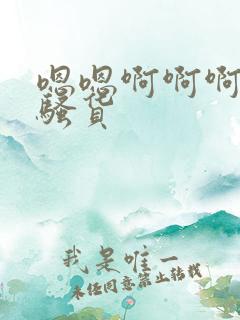 嗯嗯啊啊啊
骚货
我是唯一
未经同意禁止转载